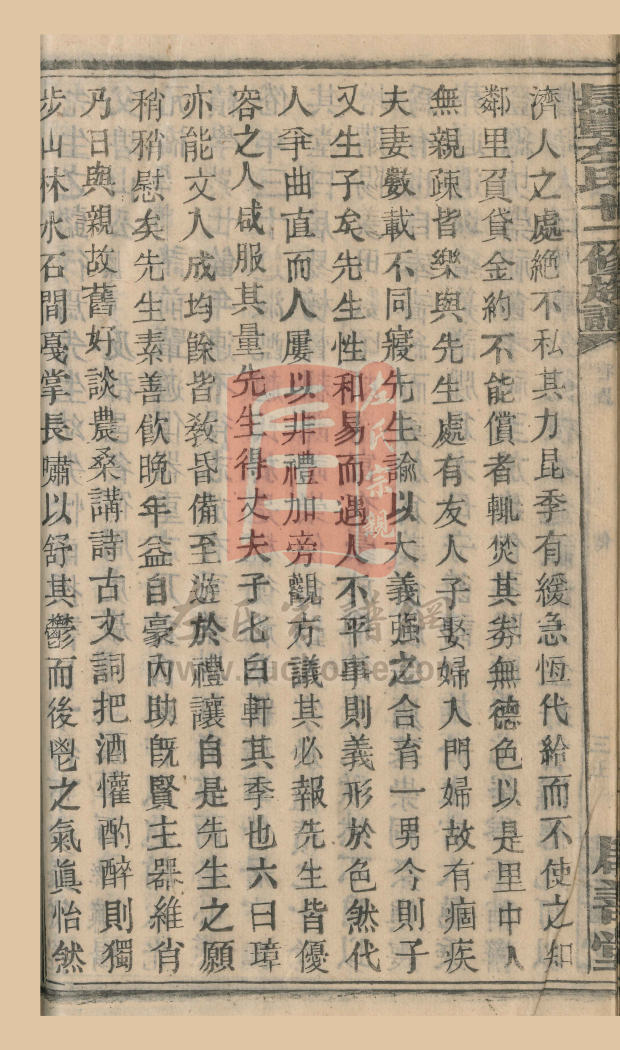 濟人之處絶不私其力昆季有緩急恆代給而不使之知
鄰里負貸金約不能償者輒焚其券無德色以是里中人
無親疎皆樂與先生處有友人子娶婦入門婦故有痼疾
夫妻數載不同寢先生諭以大義強之合育一男今則子
又生子矣先生性和易而遇人不平事則義形於色然代
人爭曲直而人屢以非禮加旁觀方議其必報先生皆優
容之人咸服其量先生得丈夫子七白軒其季也六曰璋
亦能文入成均餘皆敎昏備至遊於禮讓自是先生之願
稍稍慰矣先生素善飮晩年益自豪內助旣賢主器維肖
乃日與親故舊好談農桑講詩古文詞把酒懽酌醉則獨
步山林水石間戛掌長嘯以舒其鬱而後鬯之氣眞怡然
左氏十一修族譜
左氏宗親
左氏家譜網